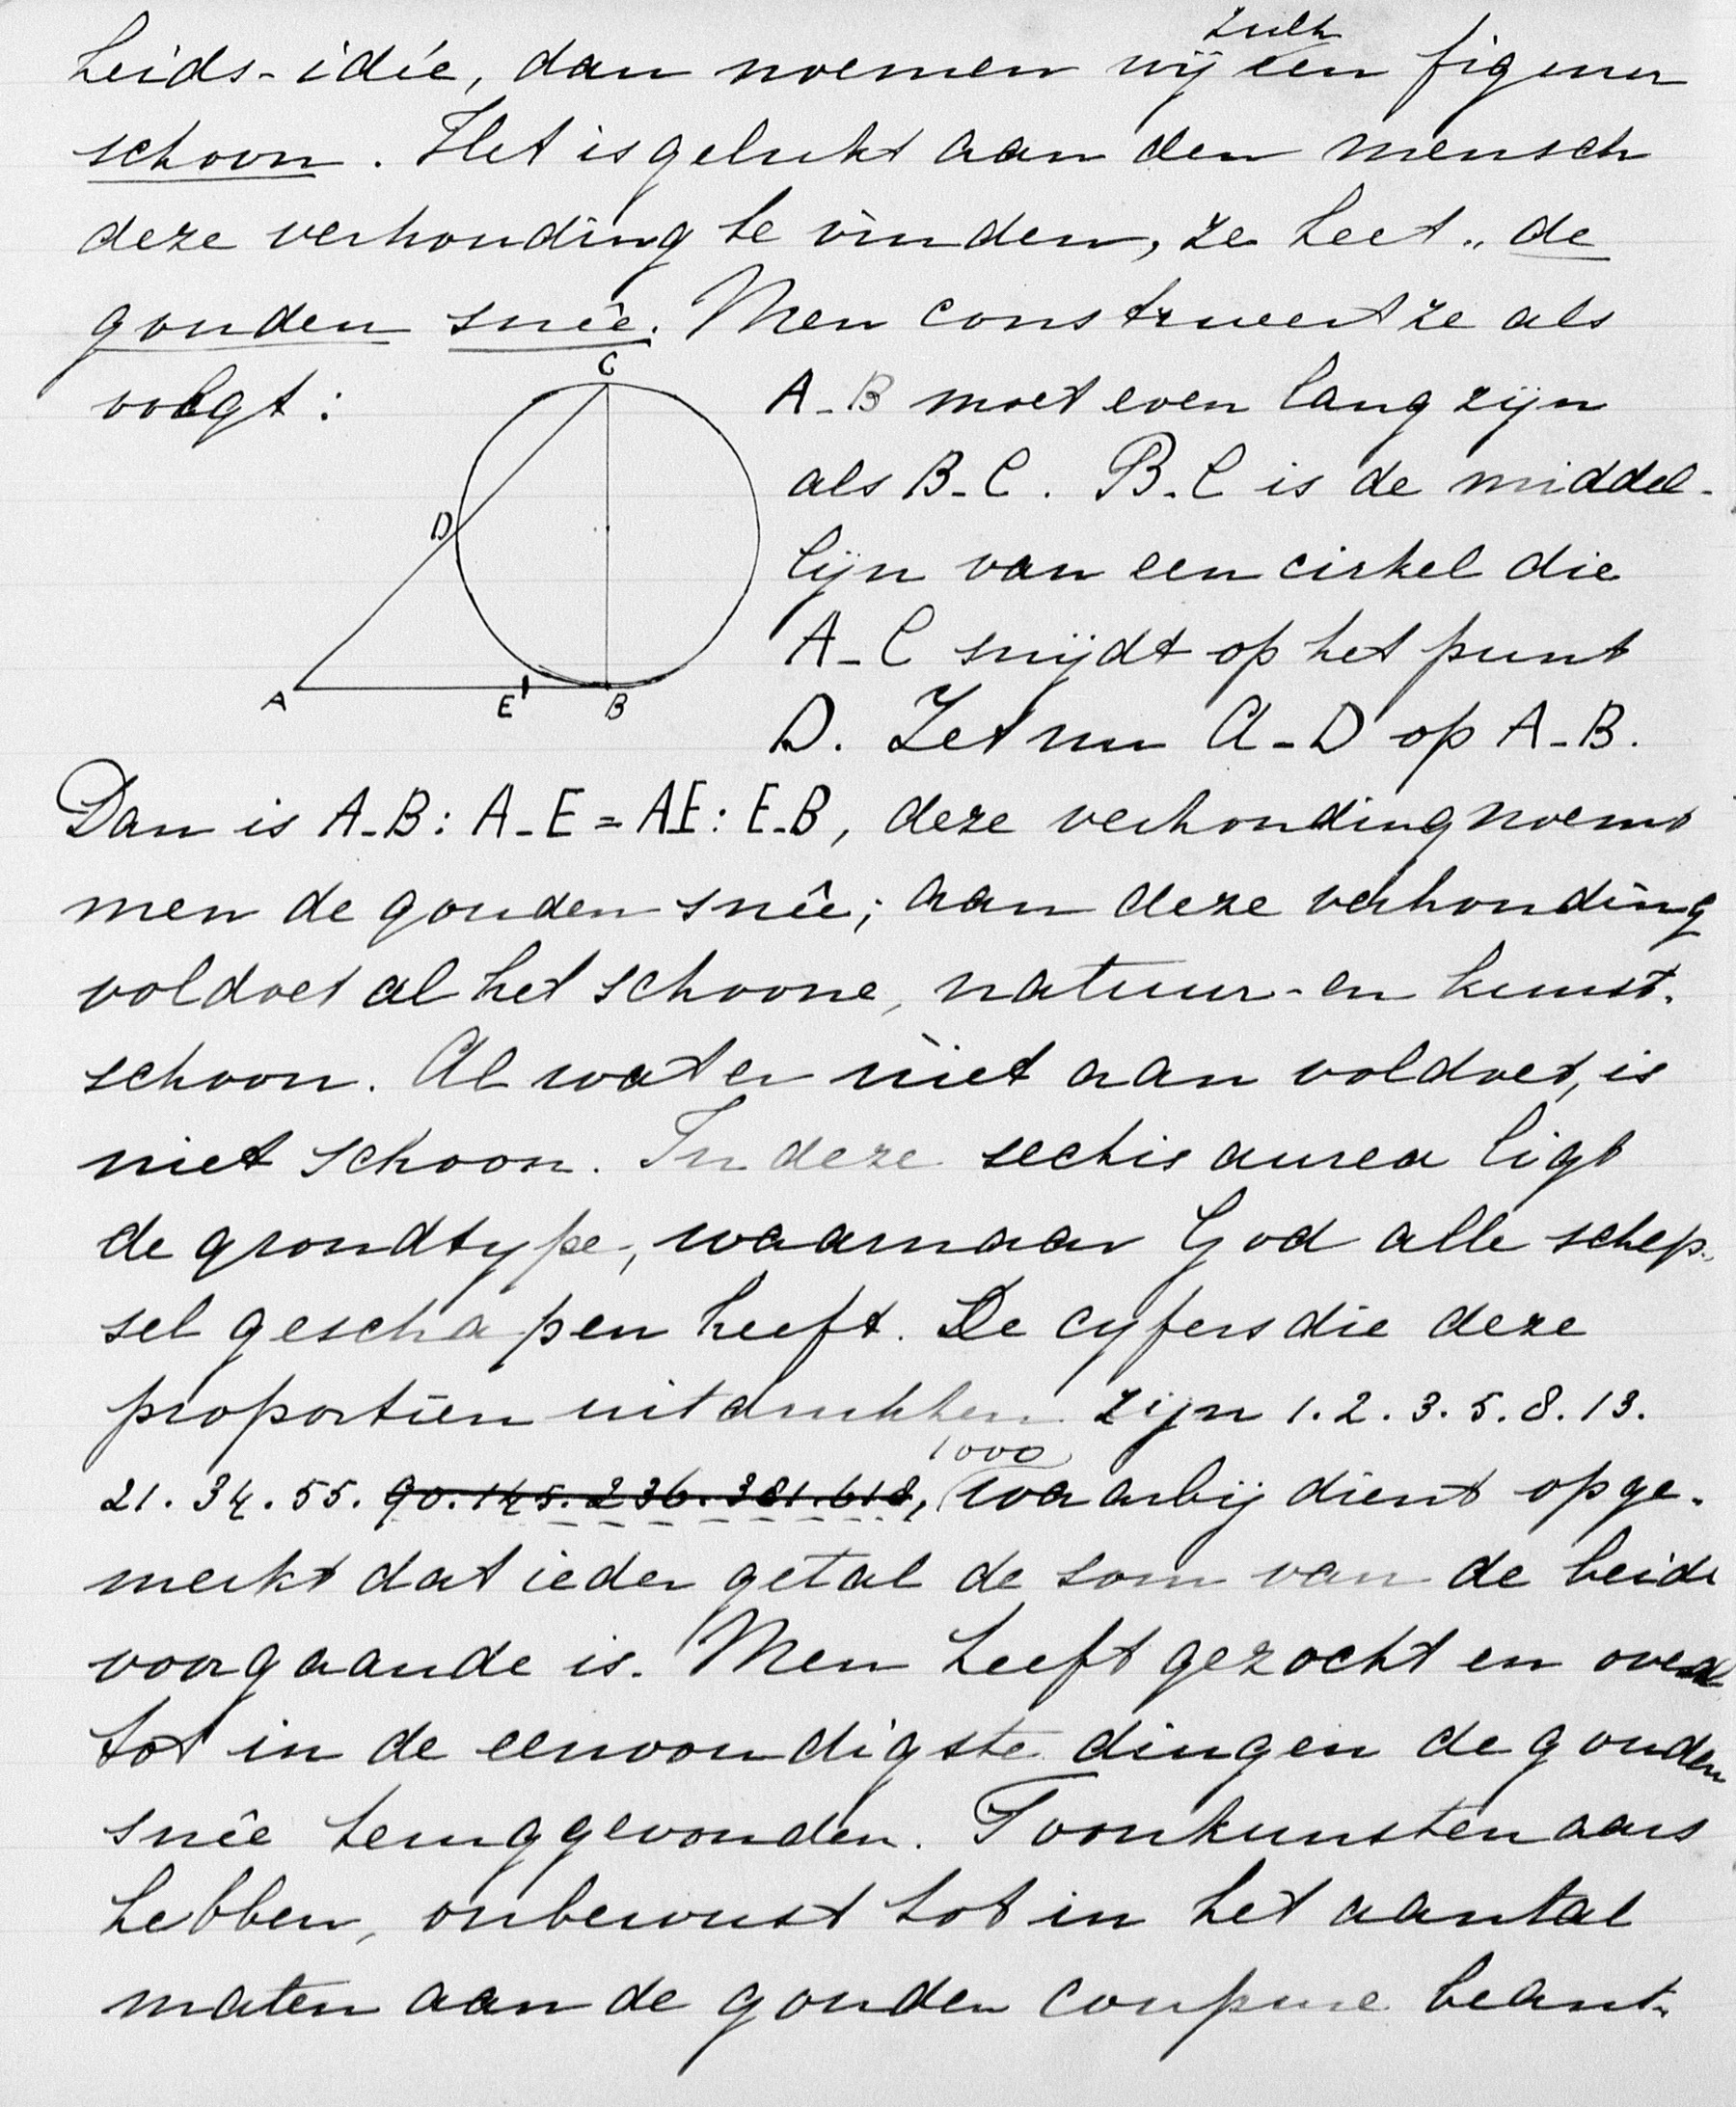 zulk
heids-idée, dan noemen wij een figuur
schoon. Het is gelukt aan den mensch
deze verhouding te vinden, ze heet „de
gouden snêe. Men construeert ze als
volgt:
C
D
A E B
A-B moet even lang zijn
als B-C. B-C is de middel-
lijn van een cirkel die
A-C snijdt op het punt
D. Zet nu A-D op A-B.
Dan is A-B: A-E = AE: E-B, deze verhouding noemt
men de gouden snêe; aan deze verhouding
voldoet al het schoone, natuur- en kunst-
schoon. Al wat er niet aan voldoet, is
niet schoon. In deze sectis aurea ligt
de grondtype, waarnaar God alle schep-
sel geschapen heeft. De cyfers die deze
proportiën uitdrukken zijn 1. 2. 3. 5. 8. 13.
1000
21. 34. 55. 90. 145. 236. 381. 618, waarbij dient opge-
merkt dat ieder getal de som van de beide
voorgaande is. Men heeft gezocht en overal
tot in de eenvoudigste dingen de gouden
snêe teruggevonden. Toonkunstenaars
hebben, onbewust tot in het aantal
maten aan de gouden coupure beant-